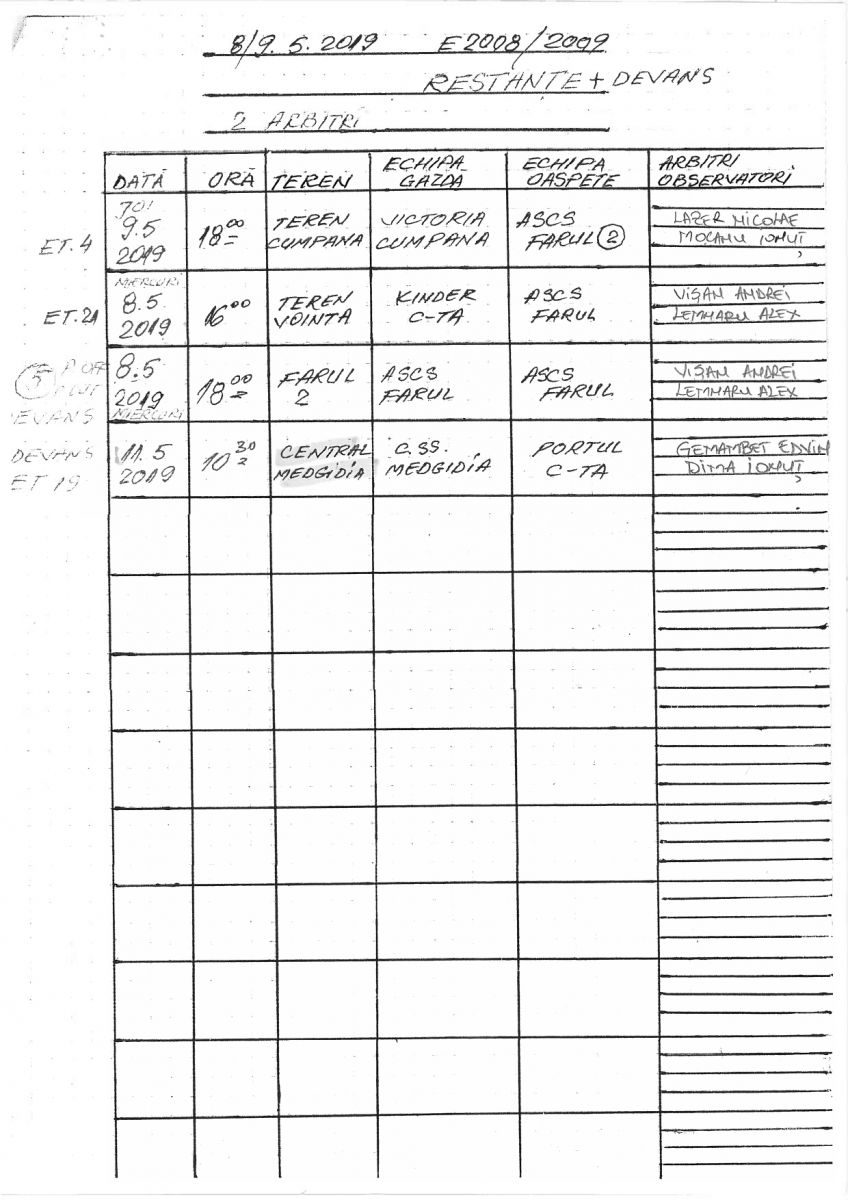 8/9.5.2019 E2008/2009
RESTANȚE + DEVANS
2 ARBITRI
DATĂ ORĂ TEREN ECHIPA GAZDĂ ECHIPA OASPETE ARBITRI OBSERVATORI
ET. 4 JOI 9.5 2019 18 00 TEREN CUMPANA VICTORIA CUMPANA ASCS FARUL 2 LAZER NICOLAE MOCANU IONUȚ
ET. 21 MIERCURI 8.5 2019 16 00 TEREN VOINTA KINDER C-TA ASCS FARUL VIȘAN ANDREI LEMNARU ALEX
5 DEVANS 8.5 2019 MIERCURI 18 00 FARUL 2 ASCS FARUL ASCS FARUL VIȘAN ANDREI LEMNARU ALEX
DEVANS ET 19 11.5 2019 10 30 CENTRAL MEDGIDIA C.SS. MEDGIDIA PORTUL C-TA GEMAMBET EDVIN DIMA IONUȚ